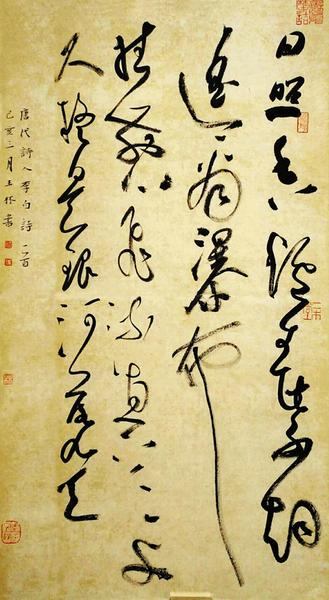 日照香爐生紫烟
遙看瀑布
掛前川飛流直下三千
尺疑是銀河落九天
唐代詩人李白詩一首
己亥三月王書